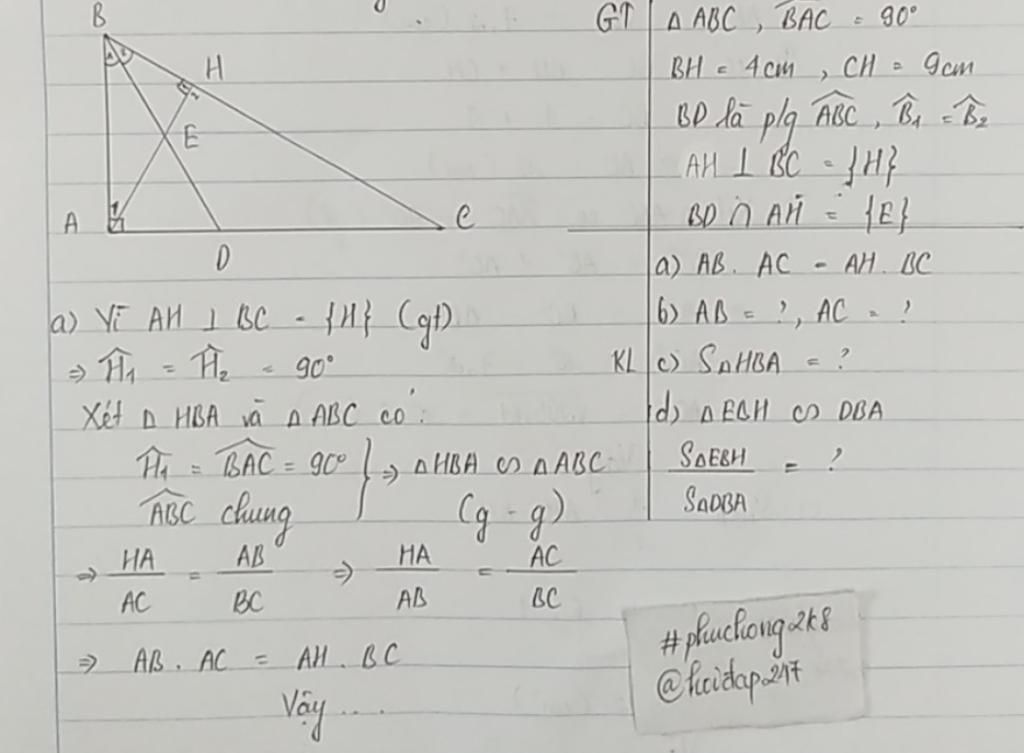 B
H
E
A
D
C
GT
Δ ABC, \widehat{BAC} = 90°
BH = 4cm, CH = 9cm
BD là p/g \widehat{ABC}, \widehat{B}₁ = \widehat{B}₂
AH ⊥ BC = {H}
BD ∩ AH = {E}
KL
a) AB. AC = AH. BC
b) AB = ?, AC = ?
c) SΔHBA = ?
d) ΔEBH ∽ DBA
SΔEBH
———— = ?
SΔDBA
a) Vì AH ⊥ BC = {H} (gt)
⇒ \widehat{H}₁ = \widehat{H}₂ = 90°
Xét Δ HBA và Δ ABC có:
\widehat{H}₁ = \widehat{BAC} = 90° } ⇒ ΔHBA ∽ ΔABC
\widehat{ABC} chung (g - g)
⇒ HA/AC = AB/BC ⇒ HA/AB = AC/BC
⇒ AB. AC = AH. BC
Vậy ....
#phuchong2k8
@hoidap247